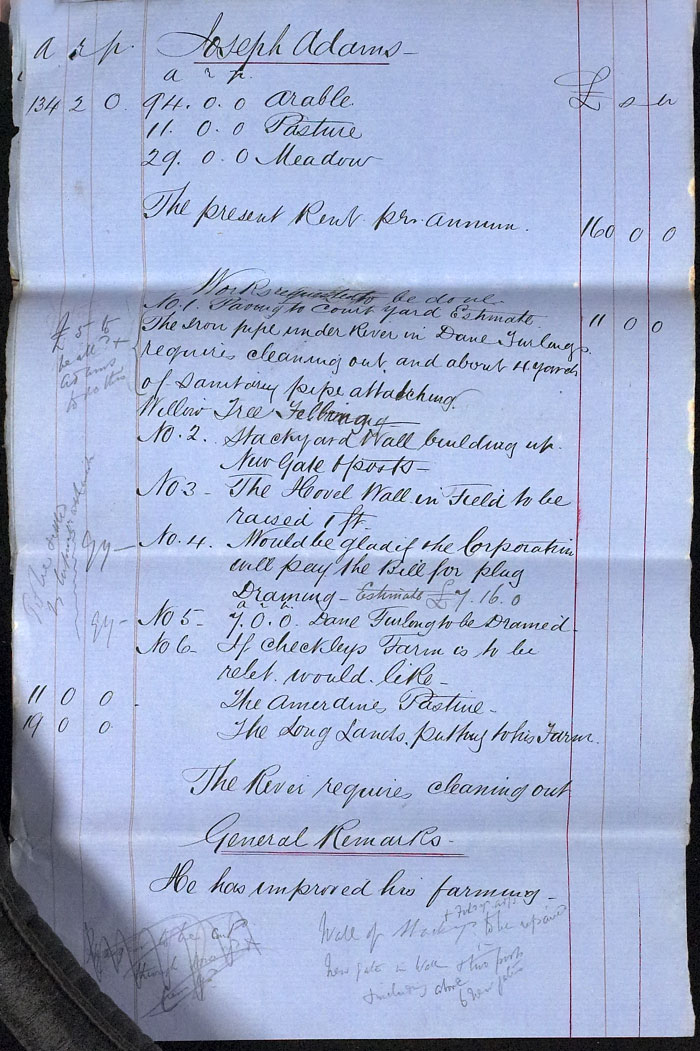 a r p. Joseph Adams -
a r p.
134 2 0. 94. 0. 0 Arable £ s d
11. 0. 0 Pasture
29. 0. 0 Meadow
The present Rent per annum. 160 0 0
Works requested to be done
No. 1. Paving to Court Yard Estimate. 11 0 0
The Iron pipe under River in Dane Furlongs
requires cleaning out, and about 4 yards
of Sanitary pipe attatching.
£5 to
Adams
Willow Tree Felling
No. 2. Stackyard Wall building up.
New Gate & posts -
No 3 - The Hovel Wall in Field to be
raised 1 ft.
No. 4. Would be glad if the Corporation
will pay the Bill for plug
Draining - Estimate £7. 16. 0
a r p
No 5 - 7. 0. 0. Dane Furlong to be Drained.
No 6 - If Checkleys Farm is to be
relet. would. like -
11 0 0 - The Amerdines Pasture -
19 0 0 The Long Lands. putting to his Farm.
The River requires cleaning out
General Remarks -
He has improved his farming -
Wall of Stackyd to be repaired
New gate in Wall & two posts
including above
6 new gates